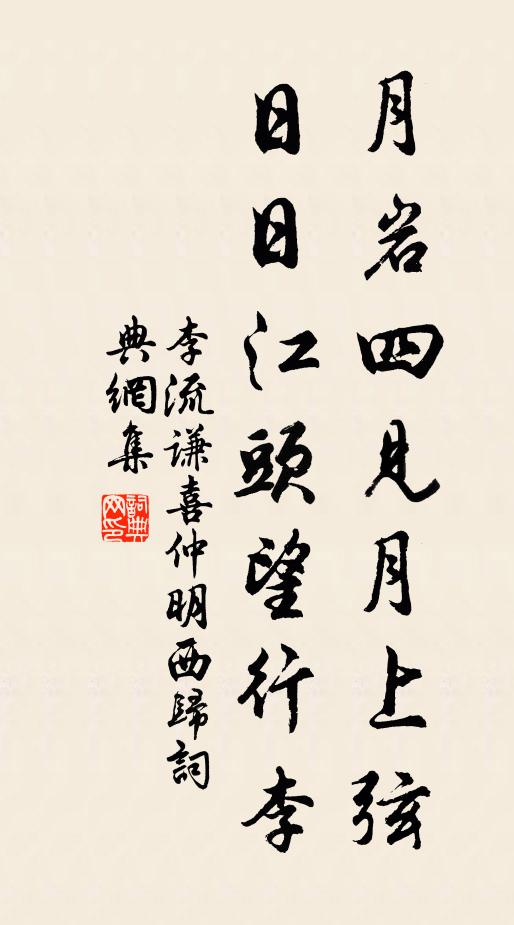 月岩四見月上弦
日日江頭望行李
李流謙喜仲明西歸詞
典網集
詞典网印